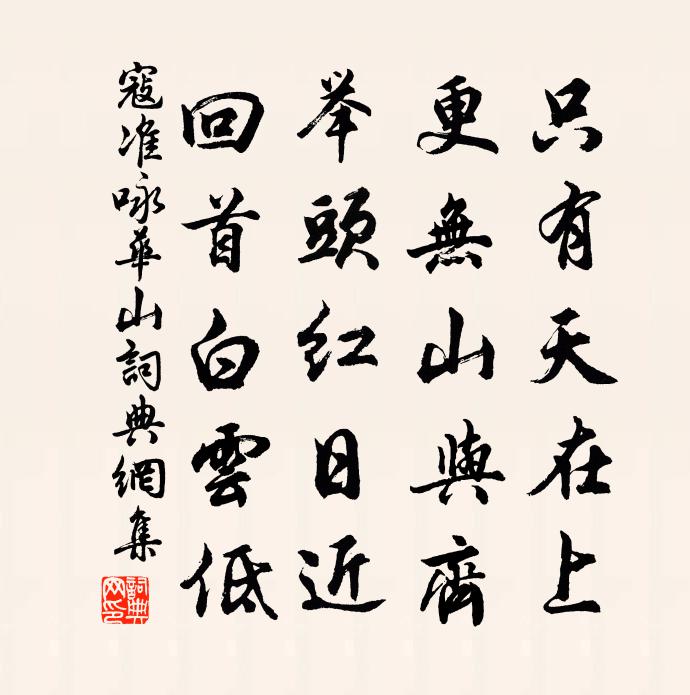 只有天在上
更無山與齊
举頭紅日近
回首白雲低
寇准咏華山詞典網集
詞典网印